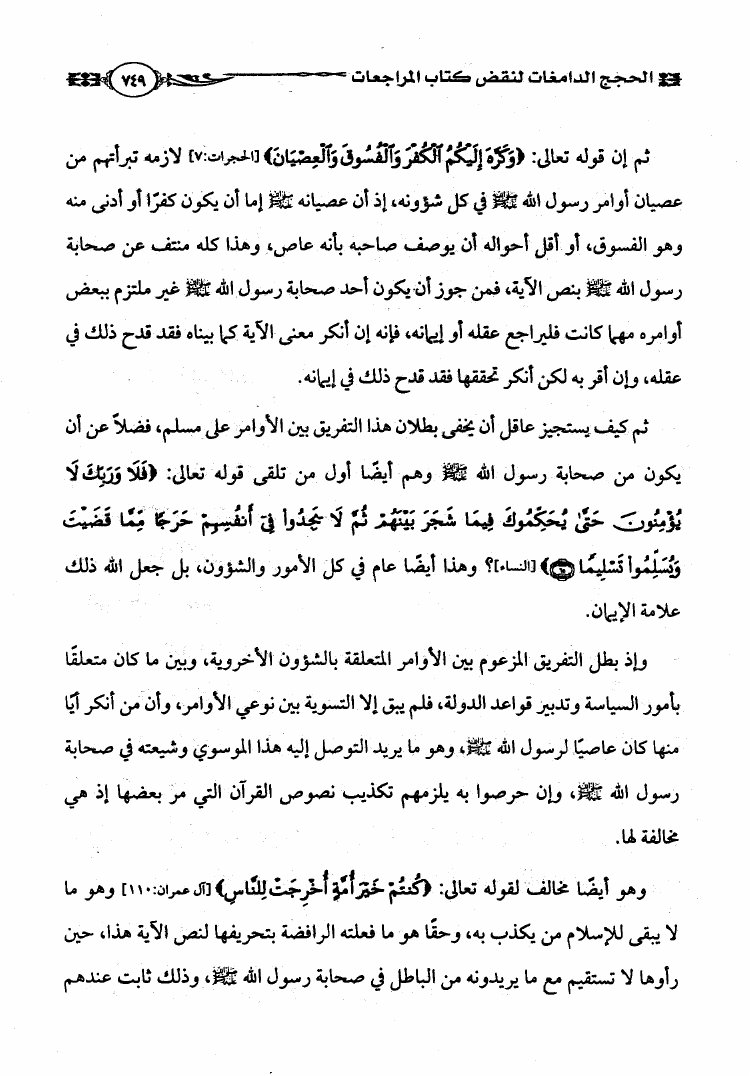 الحجج الدامغات لنقض كتاب المراجعات ٧٤٩
ثم إن قوله تعالى: ﴿وَكَرَّهَ إِلَيْكُمُ ٱلْكُفْرَ وَٱلْفُسُوقَ وَٱلْعِصْيَانَ﴾ [الحجرات:٧] لازمه تبرأتهم من
عصيان أوامر رسول الله ﷺ في كل شؤونه، إذ أن عصيانه ﷺ إما أن يكون كفرًا أو أدنى منه
وهو الفسوق، أو أقل أحواله أن يوصف صاحبه بأنه عاص، وهذا كله منتف عن صحابة
رسول الله ﷺ بنص الآية، فمن جوز أن يكون أحد صحابة رسول الله ﷺ غير ملتزم ببعض
أوامره مهما كانت فليراجع عقله أو إيمانه، فإنه إن أنكر معنى الآية كما بيناه فقد قدح ذلك في
عقله، وإن أقر به لكن أنكر تحققها فقد قدح ذلك في إيمانه.
ثم كيف يستجيز عاقل أن يخفى بطلان هذا التفريق بين الأوامر على مسلم، فضلاً عن أن
يكون من صحابة رسول الله ﷺ وهم أيضًا أول من تلقى قوله تعالى: ﴿فَلَا وَرَبِّكَ لَا
يُؤْمِنُونَ حَتَّىٰ يُحَكِّمُوكَ فِيمَا شَجَرَ بَيْنَهُمْ ثُمَّ لَا يَجِدُوا۟ فِىٓ أَنفُسِهِمْ حَرَجًا مِّمَّا قَضَيْتَ
وَيُسَلِّمُوا۟ تَسْلِيمًا﴾ [النساء]؟ وهذا أيضًا عام في كل الأمور والشؤون، بل جعل الله ذلك
علامة الإيمان.
وإذ بطل التفريق المزعوم بين الأوامر المتعلقة بالشؤون الأخروية، وبين ما كان متعلقًا
بأمور السياسة وتدبير قواعد الدولة، فلم يبق إلا التسوية بين نوعي الأوامر، وأن من أنكر أيًا
منها كان عاصيًا لرسول الله ﷺ، وهو ما يريد التوصل إليه هذا الموسوي وشيعته في صحابة
رسول الله ﷺ، وإن حرصوا به يلزمهم تكذيب نصوص القرآن التي مر بعضها إذ هي
مخالفة لها.
وهو أيضًا مخالف لقوله تعالى: ﴿كُنتُمْ خَيْرَ أُمَّةٍ أُخْرِجَتْ لِلنَّاسِ﴾ [آل عمران:١١٠] وهو ما
لا يبقى للإسلام من يكذب به، وحقًا هو ما فعلته الرافضة بتحريفها لنص الآية هذا، حين
رأوها لا تستقيم مع ما يريدونه من الباطل في صحابة رسول الله ﷺ، وذلك ثابت عندهم